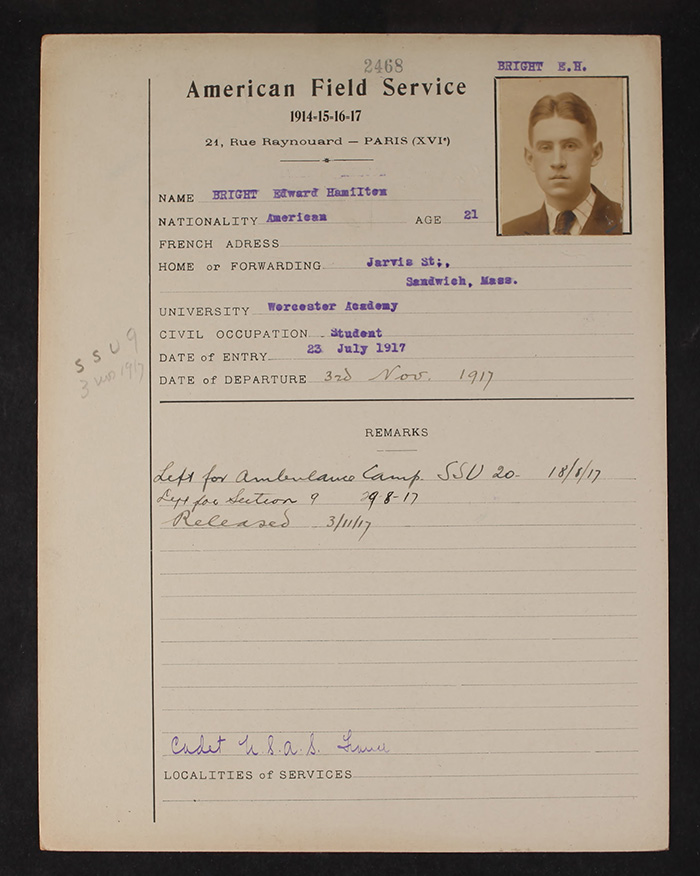 2468
BRIGHT E.H.
American Field Service
1914-15-16-17
21, Rue Raynouard — PARIS (XVIᵉ)
NAME BRIGHT Edward Hamilton
NATIONALITY American AGE 21
FRENCH ADRESS
HOME or FORWARDING Jarvis St;,
Sandwich, Mass.
UNIVERSITY Worcester Academy
CIVIL OCCUPATION Student
DATE of ENTRY 23 July 1917
DATE of DEPARTURE 3rd Nov. 1917
SSU 9
3 mo 1917
REMARKS
Left for Ambulance Camp. SSU 20- 18/8/17
Left for Section 9 29-8-17
Released 3/11/17
Cadet U.S.A.S. France
LOCALITIES of SERVICES